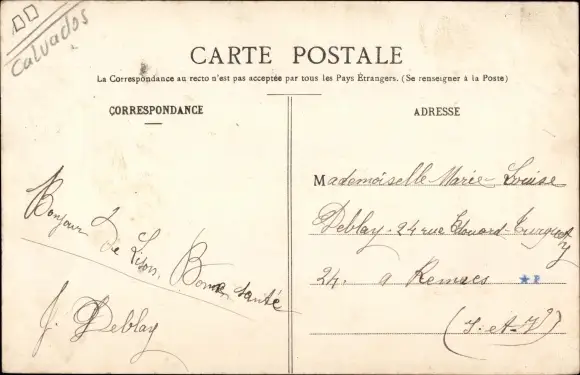 Calvados
CARTE POSTALE
La Correspondance au recto n'est pas acceptée par tous les Pays Étrangers. (Se renseigner à la Poste)
CORRESPONDANCE
ADRESSE
Bonjour
de Lison. Bonne santé
J. Deblay
Mademoiselle Marie-Louise
Deblay. 24 rue Edouard-Turquety
24. a Rennes
(I.-et-V)